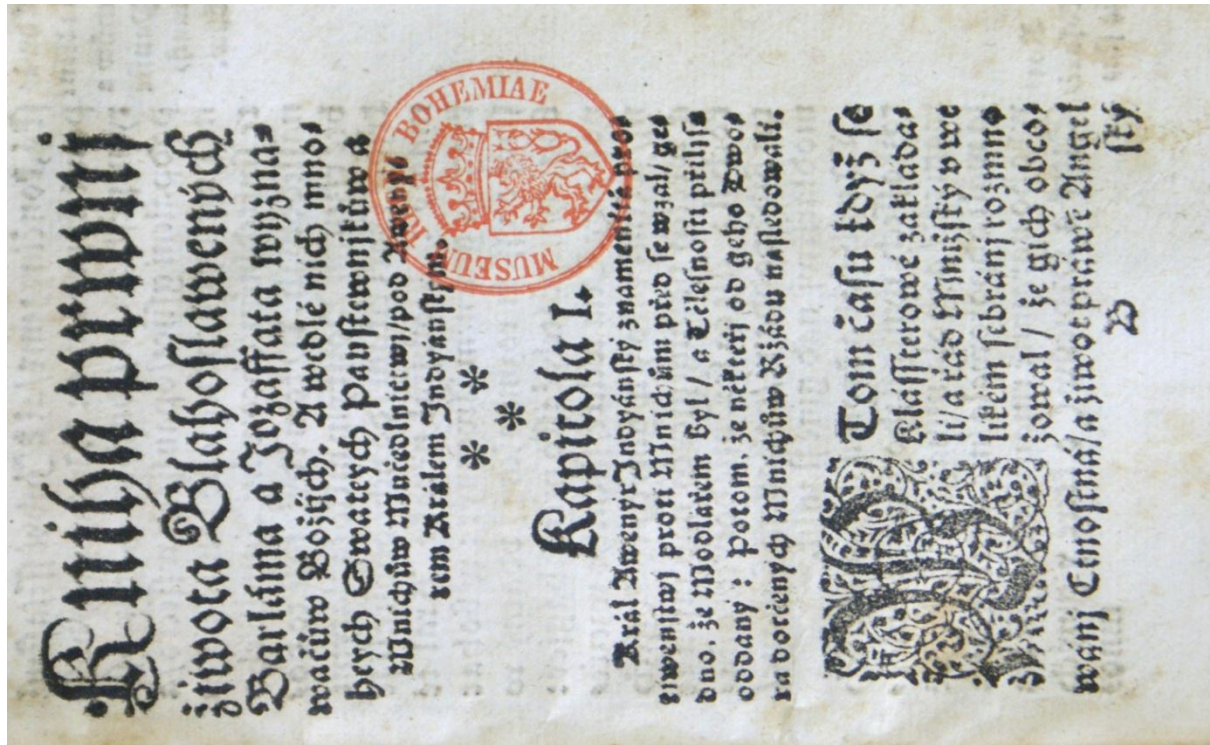 Kniha prwnj
žiwota Blahoſlawených
Barláma a Jozaffata wyzna⸗
wačůw Božjch. A wedlé nich mno⸗
hých Swatých Pauſtewnjkůw a
Mnichůw Mučedlnictwj/pod Aweny⸗
rem Králem Indyánſkým.
* * *
Kapitola I.
Král Awenyr Indyánſký znamenitá pro⸗
tiwenſtwj proti Mnichům před ſe wzal/ ge⸗
dno, že Modlářem byl/ a Tělesnoſti přjliſs
oddaný : potom, že někteřj od geho Dwo⸗
ra dotčených Mnichůw Ržádu náſledowali.
W Tom čaſu když ſe
Kláſſterowé zakláda⸗
li/ a řád Mnižſký w we
likém ſebránj rozmno
žowal/ že gich obco⸗
wánj Ctnoſtná/ a žiwot práwě Angel
B ſký
MUSEUM BOHEMIAE